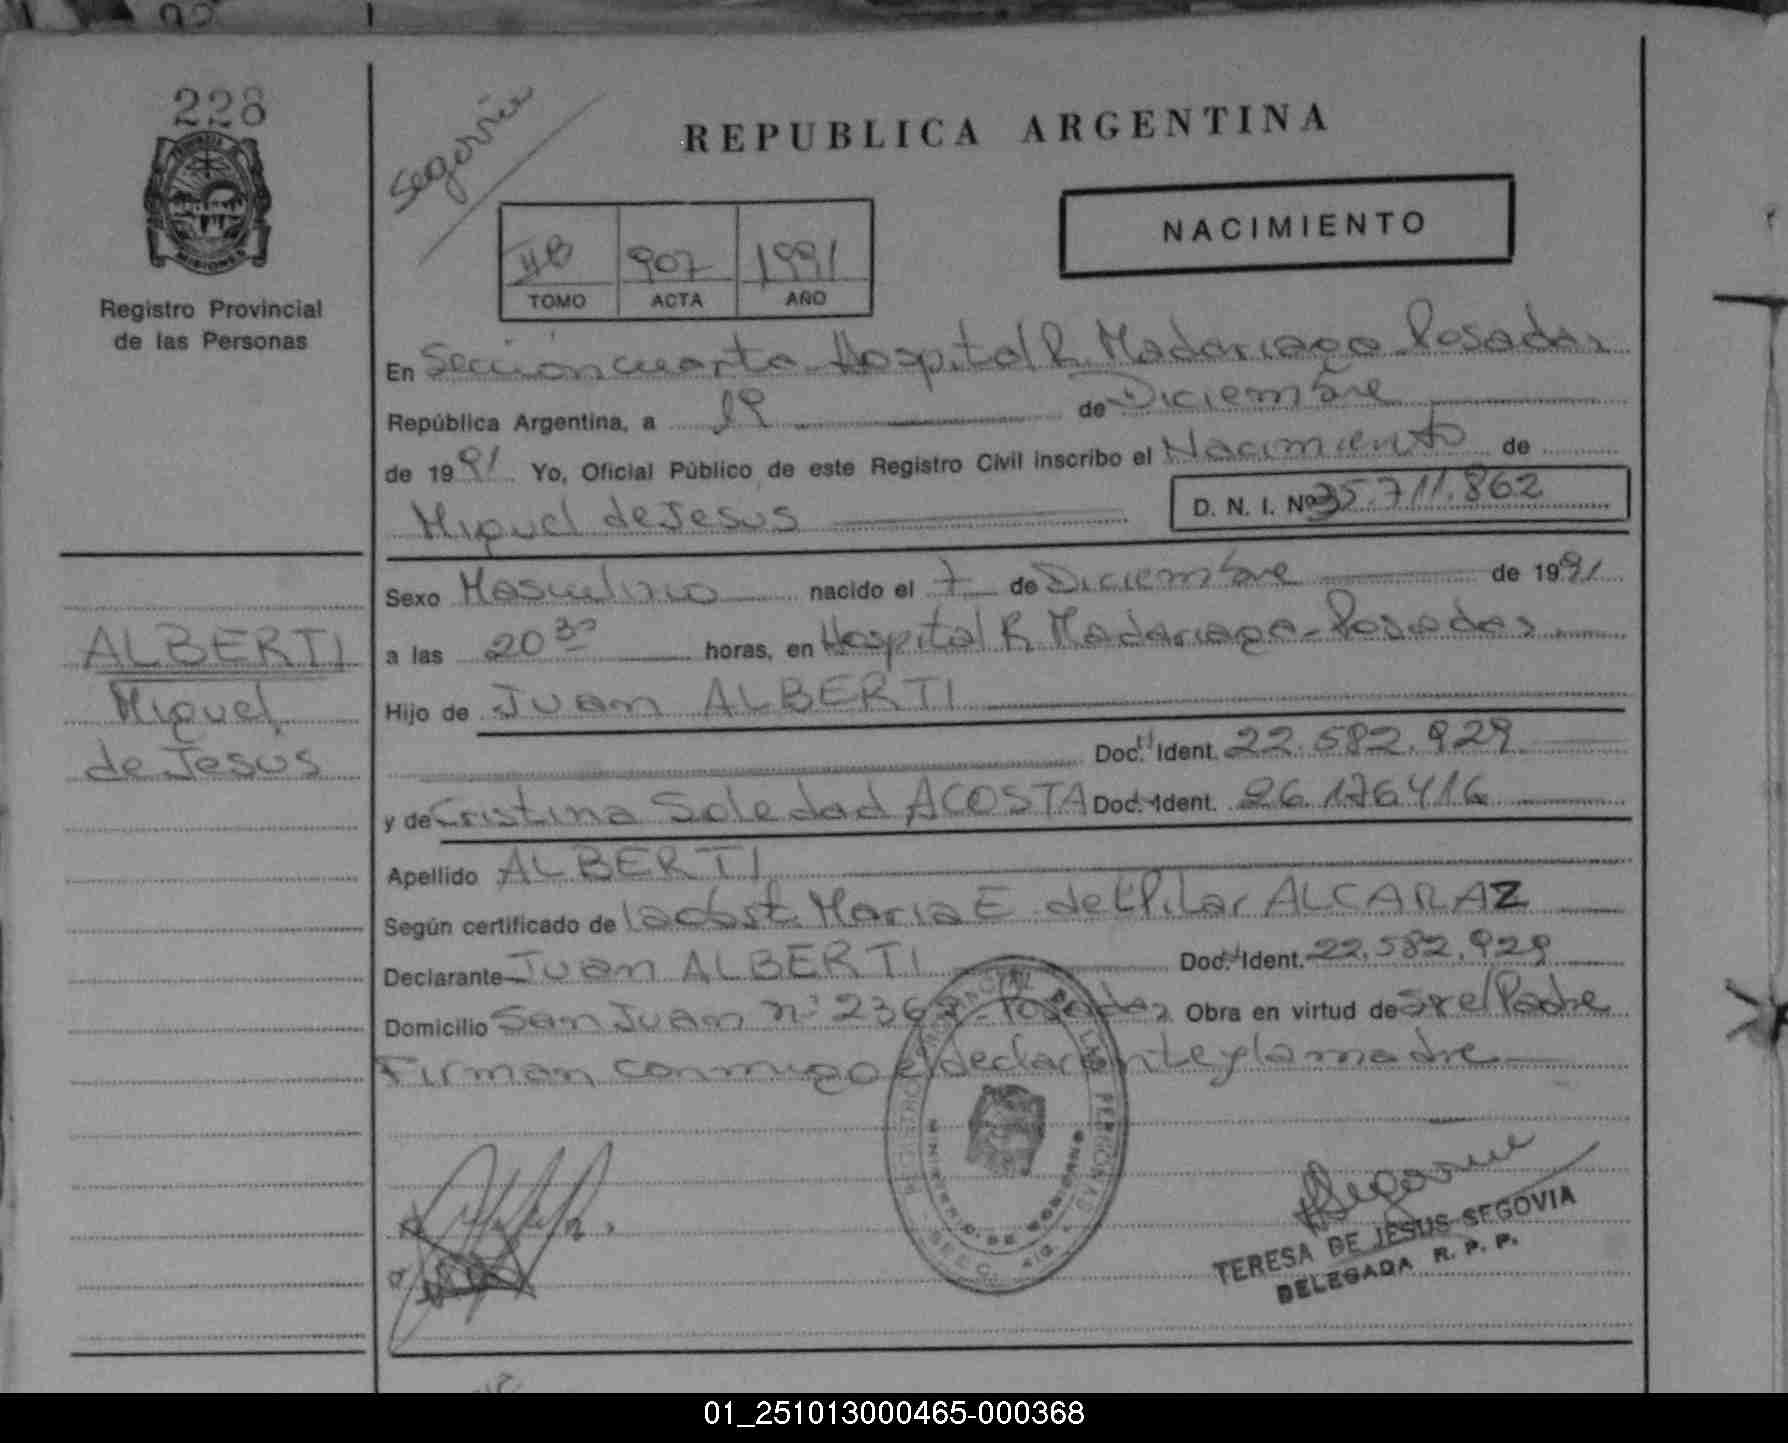 228
MISIONES
Registro Provincial
de las Personas
REPUBLICA ARGENTINA
NACIMIENTO
907 1991
TOMO ACTA AÑO
En Sección cuarta Hospital R. Madariaga Posadas
República Argentina, a 19 de Diciembre
de 1991 Yo, Oficial Público de este Registro Civil inscribo el Nacimiento de
Miguel de Jesus D. N. I. Nº 35.711.862
Sexo Masculino nacido el 7 de Diciembre de 1991
ALBERTI
Miguel
de Jesus
a las 20 30 horas, en Hospital R. Madariaga - Posadas
Hijo de Juan ALBERTI
Doc. Ident. 22.582.929
y de Cristina Soledad ACOSTA Doc. Ident. 26.176416
Apellido ALBERTI
Según certificado de la obst. Maria E del Pilar ALCARAZ
Declarante Juan ALBERTI Doc. Ident. 22.582.929
Domicilio San Juan nº 2362 - Posadas Obra en virtud de Sr el Padre
Firman conmigo el declarante y la madre
REGISTRO PROVINCIAL DE LAS PERSONAS
MINISTERIO DE GOBIERNO
TERESA DE JESUS SEGOVIA
DELEGADA R. P. P.
01_251013000465-000368